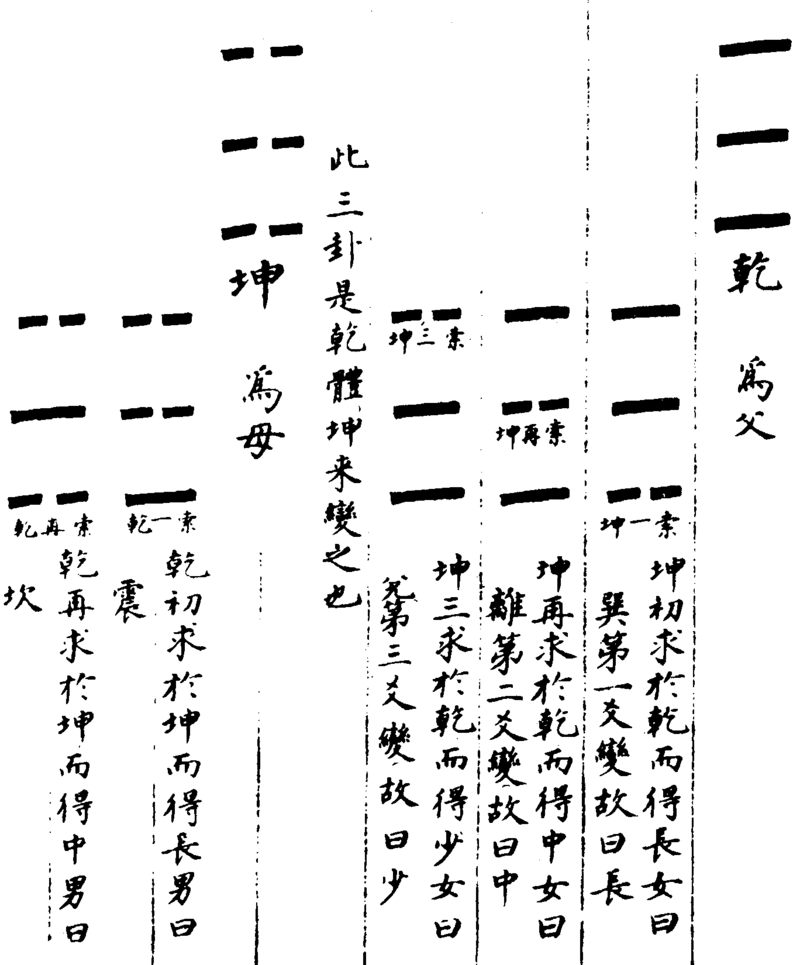 乾 為父
坤一索
坤初求於乾而得長女曰
巽第一爻變故曰長
坤再索
坤再求於乾而得中女曰
離第二爻變故曰中
坤三索
坤三求於乾而得少女曰
兌第三爻變故曰少
此三卦是乾體坤来變之也
坤 為母
乾一索
乾初求於坤而得長男曰
震
乾再索
乾再求於坤而得中男曰
坎